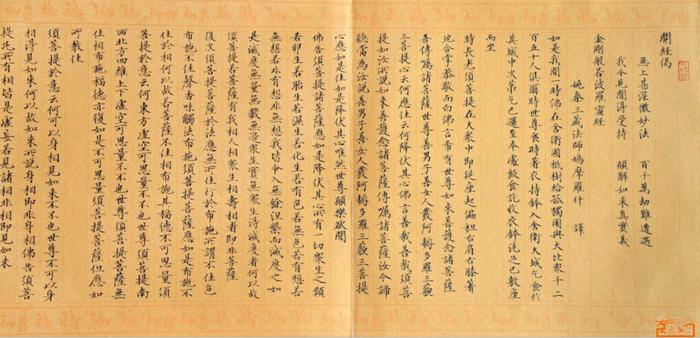 開經偈
無上甚深微妙法 百千萬劫難遭遇
我今見聞得受持 願解如來真實義
金剛般若波羅蜜經
姚秦三藏法師鳩摩羅什 譯
如是我聞一時佛在舍衛國祇樹給孤獨園與大比丘眾千二
百五十人俱爾時世尊食時著衣持鉢入舍衛大城乞食於
其城中次第乞已還至本處飯食訖收衣鉢洗足已敷座
而坐
時長老須菩提在大眾中即從座起偏袒右肩右膝著
地合掌恭敬而白佛言希有世尊如來善護念諸菩薩
善付囑諸菩薩世尊善男子善女人發阿耨多羅三藐
三菩提心云何應住云何降伏其心佛言善哉善哉須菩
提如汝所說如來善護念諸菩薩善付囑諸菩薩汝今諦
聽當為汝說善男子善女人發阿耨多羅三藐三菩提
心應如是住如是降伏其心唯然世尊願樂欲聞
佛告須菩提諸菩薩應如是降伏其心所有一切眾生之類
若卵生若胎生若濕生若化生若有色若無色若有想若
無想若非有想非無想我皆令入無餘涅槃而滅度之如
是滅度無量無數無邊眾生實無眾生得滅度者何以故
須菩提若菩薩有我相人相眾生相壽者相即非菩薩
復次須菩提菩薩於法應無所住於布施所謂不住色
布施不住聲香味觸法布施須菩提菩薩應如是布施不
住於相何以故若菩薩不住相布施其福德不可思量須
菩提於意云何東方虛空可思量不不也世尊須菩提南
西北方四維上下虛空可思量不不也世尊須菩提菩薩無
住相布施福德亦復如是不可思量須菩提菩薩但應如
所教住
須菩提於意云何可以身相見如來不不也世尊不可以身
相得見如來何以故如來所說身相即非身相佛告須菩
提凡所有相皆是虛妄若見諸相非相即見如來